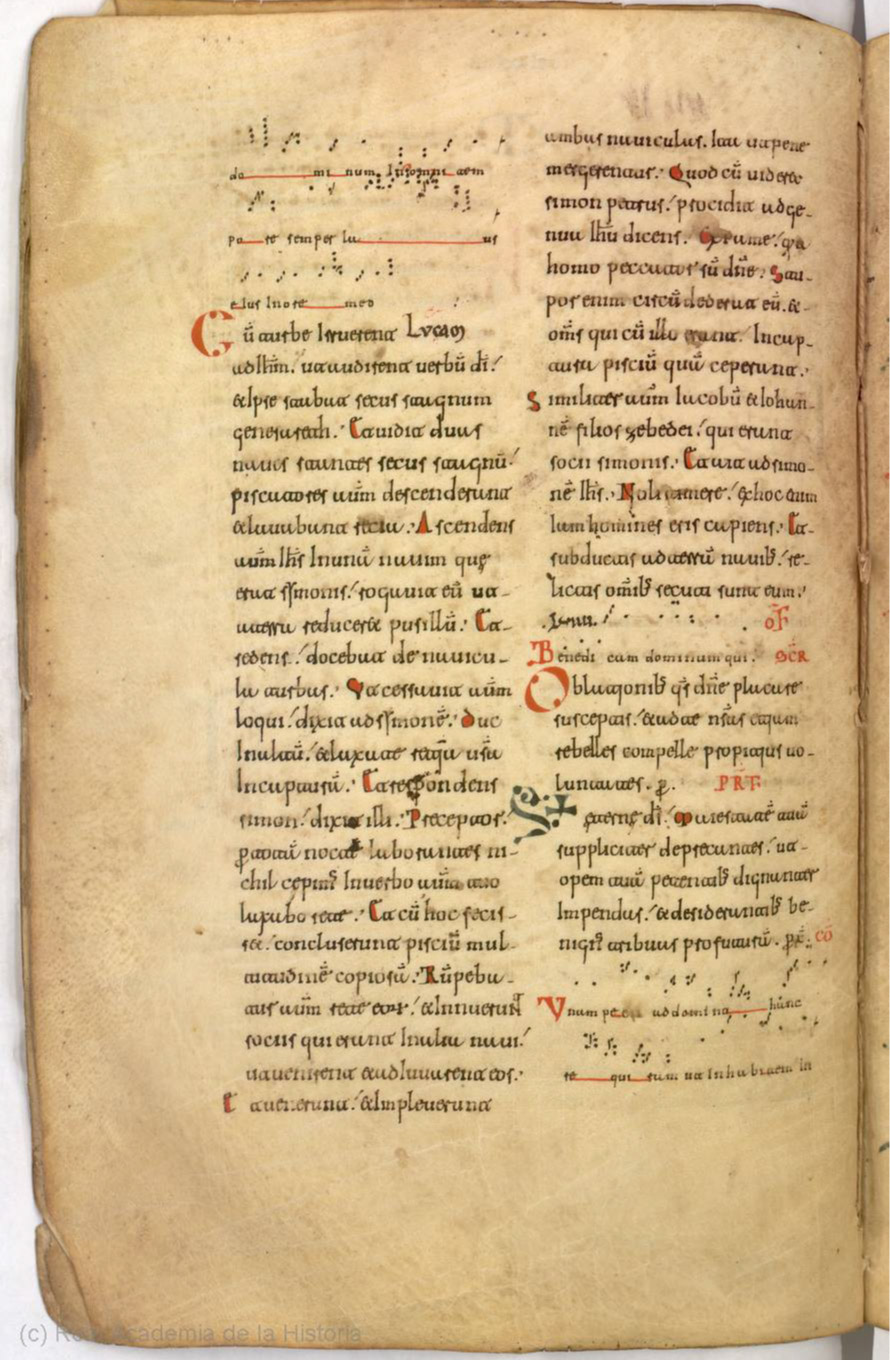 do mi num. In omni tem
po re semper la us
eius In ore meo
Cū turbe Irruerent Lucam
ad Ihm̄. ut audirent uerbū dī.
& Ipse stabat secus stagnum
genesareth. Et uidit duas
naues stantes secus stagnū.
piscatores aūm descenderunt
& lauabant retia. Ascendens
aūm Ihs̄ In unā nauim quę
erat simonis. rogauit eū ut
a terra reduceret pusillū. Et
sedens. docebat de nauicu-
la turbas. Vt cessauit aūm
loqui. dixit ad simonē. Duc
In altū. & laxate retia urā
In capturā. Et respondens
simon. dixit illi. Preceptor.
ꝑ totā noctē laborantes ni-
chil cepimꝰ In uerbo aūm tuo
laxabo rete. Et cū hoc fecis-
set. concluserunt pisciū mul-
titudinē copiosā. Rūpeba-
tur aūm rete eoꝝ. & Innuerunt
sociis qui erant In alia naui.
ut uenirent & adiuuarent eos.
Et uenerunt. & Impleuerunt
ambas nauiculas. Ita ut pene
mergerentur. Quod cū uideret
simon petrus. procidit ad ge-
nua Ihū dicens. Exi a me. qia
homo peccator sū dn̄e. Stu-
por enim circūdederat eū. &
om̄s qui cū illo erant. In cap-
tura pisciū quā ceperunt.
Similiter aūm Iacobū & Iohan-
nē filios zebedei. qui erant
socii simonis. Et ait ad simo-
nē Ihs̄. Noli timere. ex hoc Iam
Iam homines eris capiens. Et
subductis ad terrā nauib; re-
lictis omīb; secuti sunt eum.
OF
Benedi cam dominum qui. SCR
Oblationib; qs̄ dn̄e placare
susceptis. & ad te nrās etiam
rebelles compelle propitius uo-
luntates. ꝑ. PRF
&erne dī. Maiestatē tuā
suppliciter deprecantes. ut
opem tuā petentib; dignanter
Impendas. & desiderantib; be-
nignꝰ tribuas profuturā. ꝑ x̄. CO
Vnam peti a domi no hanc
re qui ram ut Inhabitem In